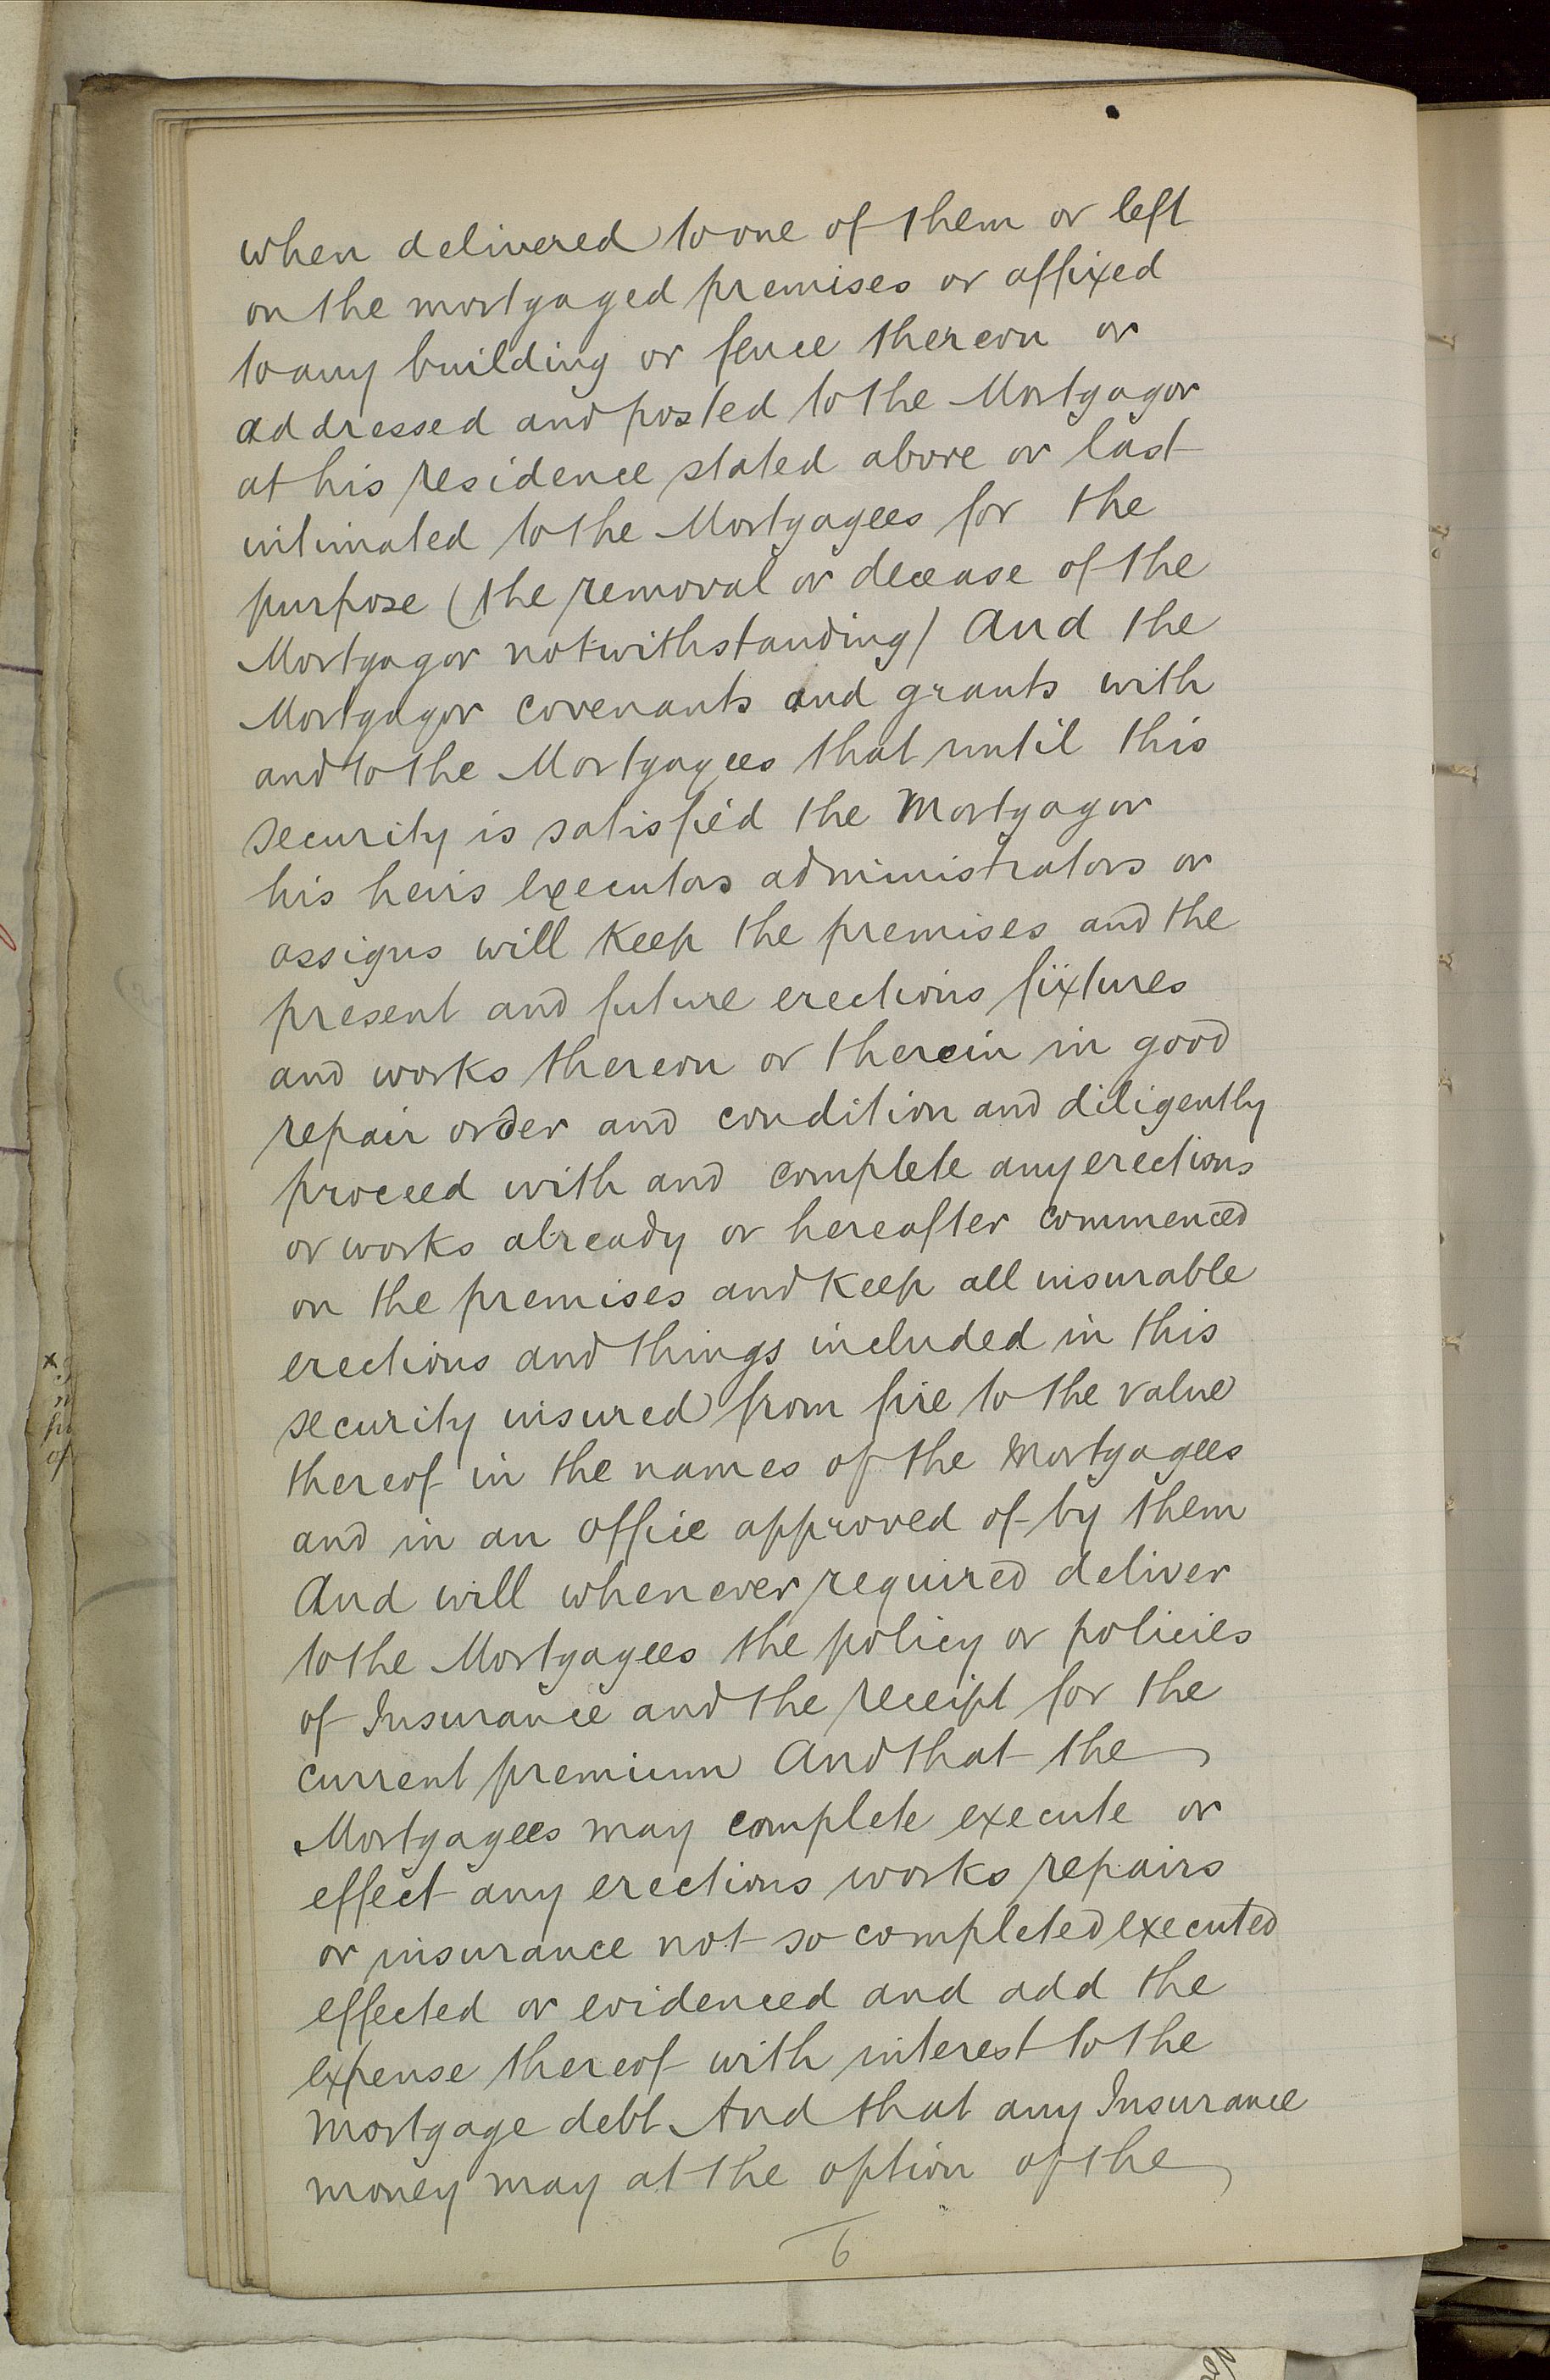 when delivered to one of them or left
on the mortgaged premises or affixed
to any building or fence thereon or
addressed and posted to the Mortgagor
at his residence stated above or last
intimated to the Mortgagees for the
purpose (the removal or decease of the
Mortgagor notwithstanding) And the
Mortgagor covenants and grants with
and to the Mortgagees that until this
security is satisfied the Mortgagor
his heirs executors administrators or
assigns will keep the premises and the
present and future erections fixtures
and works thereon or therein in good
repair order and condition and diligently
proceed with and complete any erections
or works already or hereafter commenced
on the premises and keep all insurable
erections and things included in this
security insured from fire to the value
thereof in the names of the Mortgagees
and in an office approved of by them
And will whenever required deliver
to the Mortgagees the policy or policies
of Insurance and the receipt for the
current premium And that the
Mortgagees may complete execute or
effect any erections works repairs
or insurance not so completed executed
effected or evidenced and add the
expense thereof with interest to the
mortgage debt And that any Insurance
money may at the option of the
6